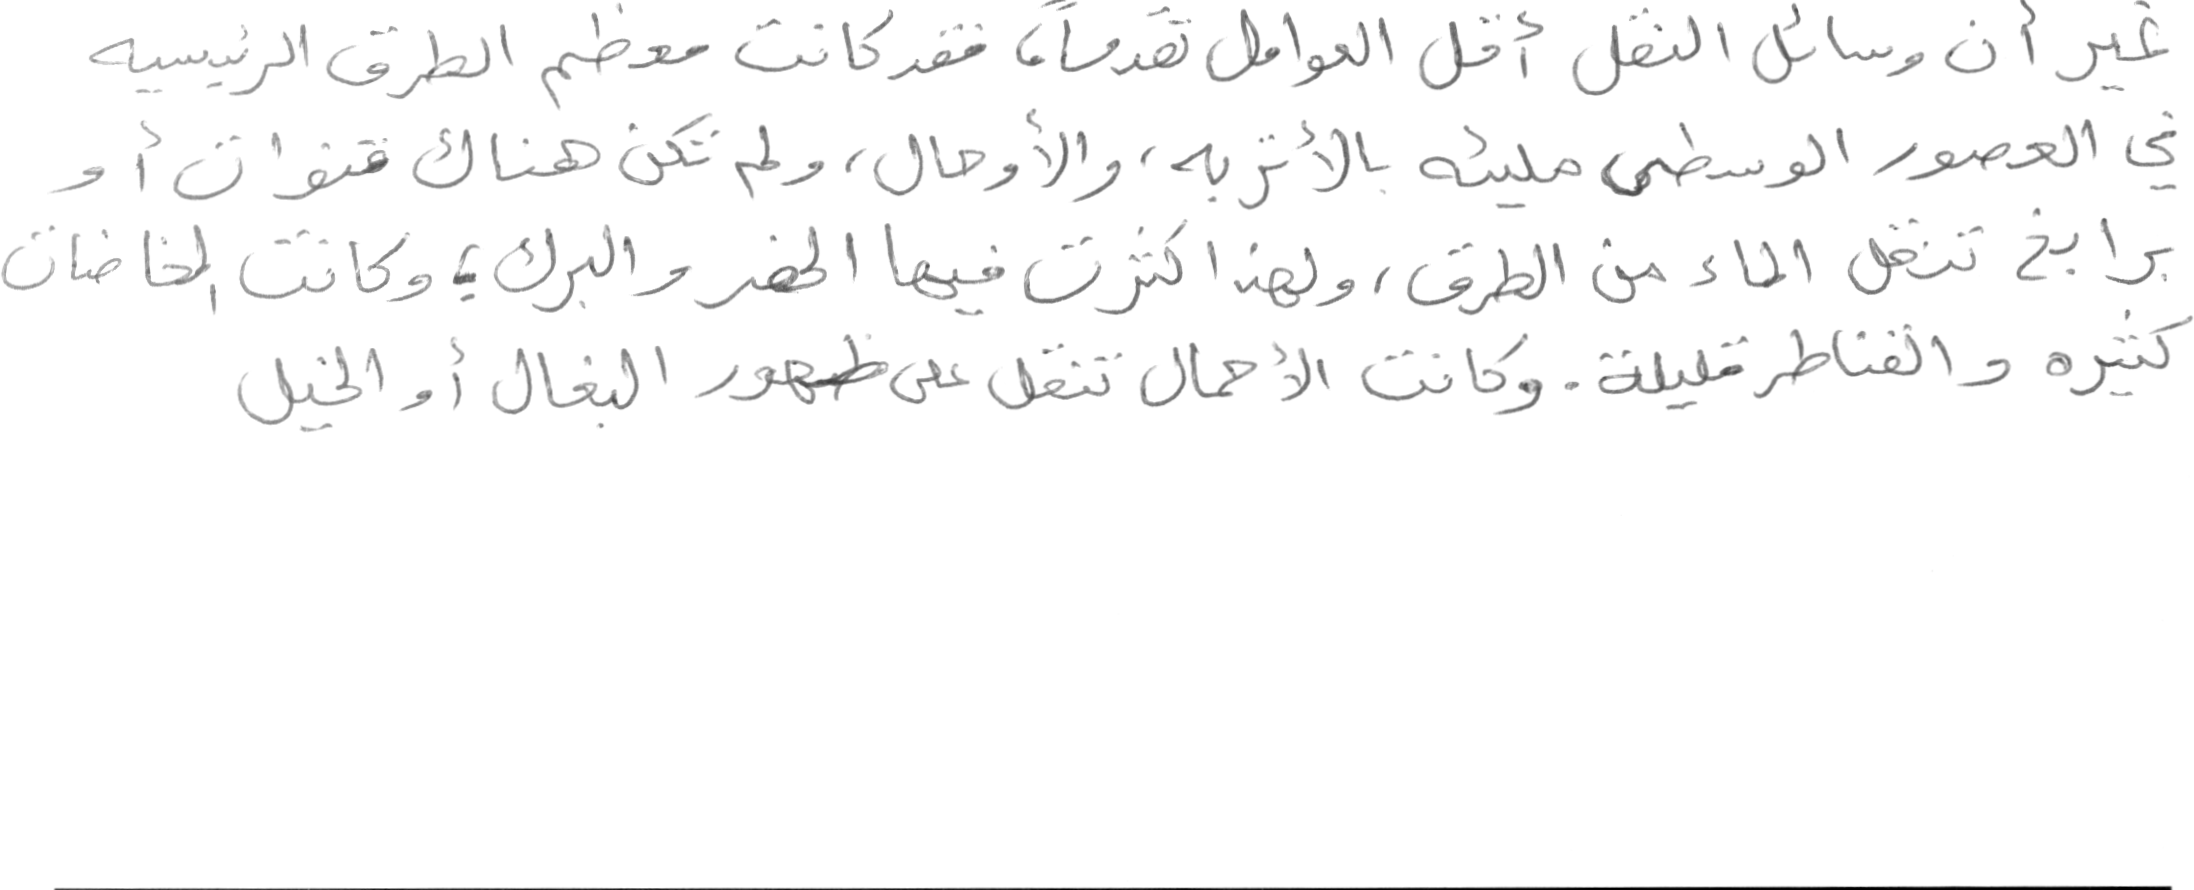 غير أن وسائل النقل أقل العوامل تقدماً، فقد كانت معظم الطرق الرئيسيه
في العصور الوسطى مليئه بالأتربه، والأوحال، ولم تكن هناك قنوات أو
برابخ تنقل الماء من الطرق، ولهذا كثرت فيها الحفر والبرك؛ وكانت المخاضات
كثيره والقناطر قليلة. وكانت الأحمال تنقل على ظهور البغال أو الخيل